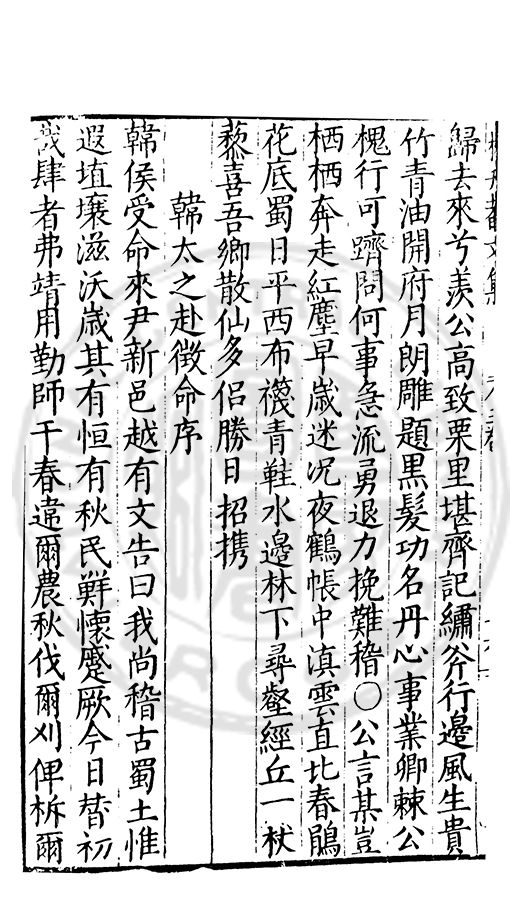 歸去來兮羨公高致栗里堪齊記繡斧行邊風生貴
竹青油開府月朗雕題黑髮功名丹心事業卿棘公
槐行可躋問何事急流勇退力挽難稽○公言某豈
栖栖奔走紅塵早歲迷况夜鶴帳中滇雲直比春鵑
花底蜀日平西布襪青鞋水邊林下尋壑經丘一杖
藜喜吾鄉散仙多侣勝日招携
韓太之赴徵命序
韓侯受命來尹新邑越有文告曰我尚稽古蜀土惟
遐埴壤滋沃歲其有恒有秋民鮮懷蹙厥今日朁初
哉肆者弗靖用勤師干春違爾農秋伐爾刈俾柝爾